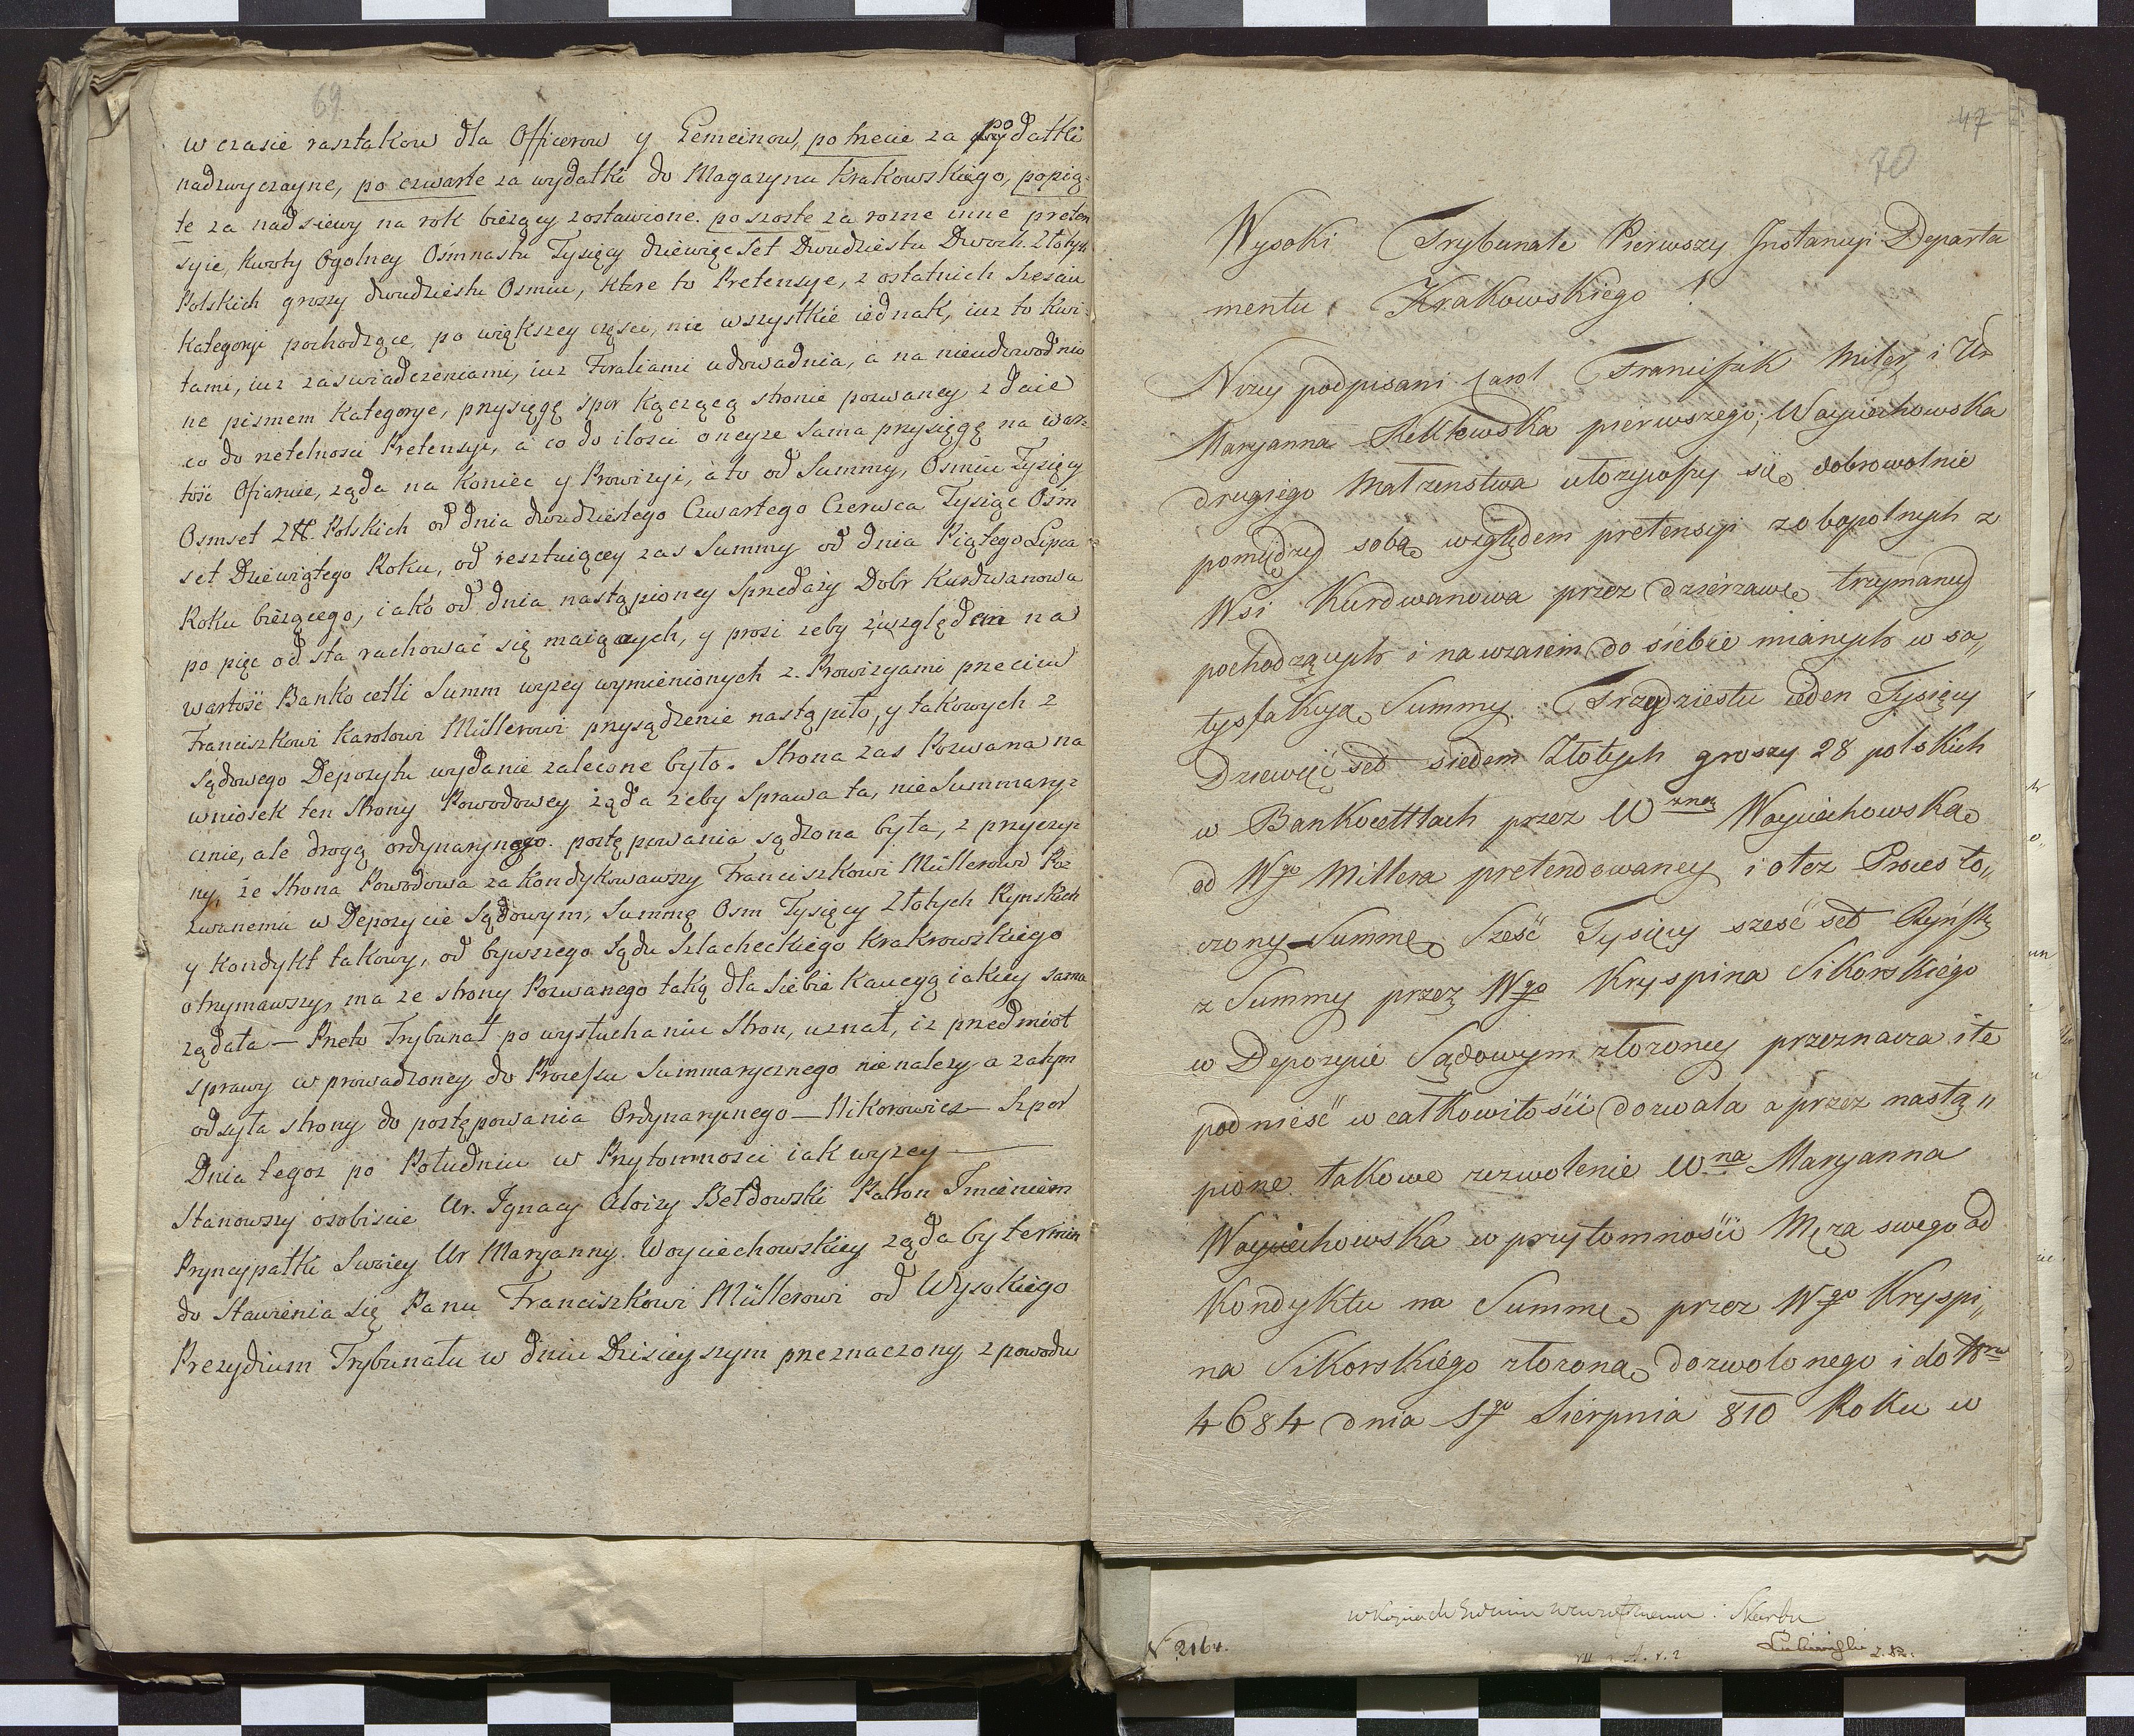 69
w czasie rasztakow dla Officerow y Gemeinow, po trzecie za podatki
nadzwyczayne, po czwarte za wydatki do Magazynu Krakowskiego, popią=
te za nadsiewy na rok bieżący zostawione. po szoste za rozne inne preten
syie, kwoty Ogolney Ośmnastu Tysięcy dziewięcset Dwudziestu Dwoch Złotych
Polskich groszy dwudziestu Osmiu, ktore to Pretensye, z ostatnich Szesciu
Kategoryi pochodzące, po większey części, nie wszystkie iednak, iuz to Kwi=
tami, iuz zaswiadczeniami, iuz udowadnia, a na nieudowodnio
ne pismem Kategorye, przysięgę spor kączącą stronie pozwaney zdaie
co do rzetelnosci Pretensyi, a co do ilosci oneyze sama przysięgę na war=
tość Ofiaruie, ząda na koniec y Prowizyi, a to od Summy, Osmiu Tysięcy
Osmset Złł. Polskich od dnia dwudziestego Czwartego Czerwca Tysiąc Osm
set Dziewiątego Roku, od resztuiącey zas Summy od dnia Piątego Lipca
Roku bieżącego, iako od dnia nastąpioney Sprzedaży Dobr Kurdwanowa
po pięc od sta rachować się maiących, y prosi zeby z względem na
wartość Banko cetli Summ wyzey wymienionych z Prowizyami przeciw
Franciszkowi Karolowi Müllerowi przysądzenie nastąpiło, y takowych z
Sądowego Depozytu wydanie zalecone było. Strona zas Pozwana na
wniosek ten Strony Powodowey żąda zeby Sprawa ta, nie Summary=
cznie, ale drogą ordynarynego postępowania sądzona była, z przyczy=
ny, że Strona Powodowa zakondykowawszy Franciszkowi Müllerowi Po=
zwanemu w Depozycie Sądowym, Summę Osm Tysięcy Złotych Rynskich
y kondykt takowy, od bywszego Sądu Szlacheckiego Krakrowskiego
otrzymawszy, ma ze strony Pozwanego taką dla siebie Kaucyą iakiey sama
ządała — Przeto Trybunał po wysłuchaniu Stron, uznał, iz przedmiot
sprawy w prowadzoney do Processu Summarycznego nie nalezy a zatym
odsyła strony do postępowania Ordynarynego — Nikorowicz — Szpor
Dnia tegoz po Południu w Przytomnosci iak wyzey —
Stanowszy osobiscie Ur. Ignacy Aloizy Bełdowski Patron Jmieniem
Pryncypałki Swoiey Ur Maryanny Woyciechowskiey ząda by termin
do Stawienia się Panu Franciszkowi Müllerowi od Wysokiego
Prezydium Trybunału w dniu Dzisieyszym przeznaczony z powodu
47
70
Wysoki Trybunale Pierwszy Jnstancyi Departa
mentu Krakowskiego !
Nizey podpisani Karol Franciszek Miler i Ur
Maryanna pierwszego, Woyciechowska
drugiego Małzenstwa ułozywszy się dobrowolnie
pomiędzy sobą względem pretensyi zobopolnych z
Wsi Kurdwanowa przez dzierzawę trzymaney
pochodzących i nawzaiem do siebie mianych w sa„
tysfakcyą Summy Trzydziestu ieden Tysięcy
Dziewięć set siedem Złotych groszy 28 polskich
w Bankocettlach przez Wzną Woyciechowską
od Wgo Millera pretendowaney i otez Proces to„
czony Summę Sześć Tysięcy sześć set Ryńsk
z Summy przez Wgo Kryspina Sikorskiego
w Depozycie Sądowym złozoney przeznacza i te
podnieść w całkowitości dozwala a przez nastą„
pione takowe zezwolenie Wna Maryanna
Woyciechowska w przytomności Męza swego od
Kondyktu na Summę przez Wgo Kryspi„
na Sikorskiego złozoną dozwolonego i do Nru
4684 dnia 1go Sierpnia 810 Roku w
N 2164.